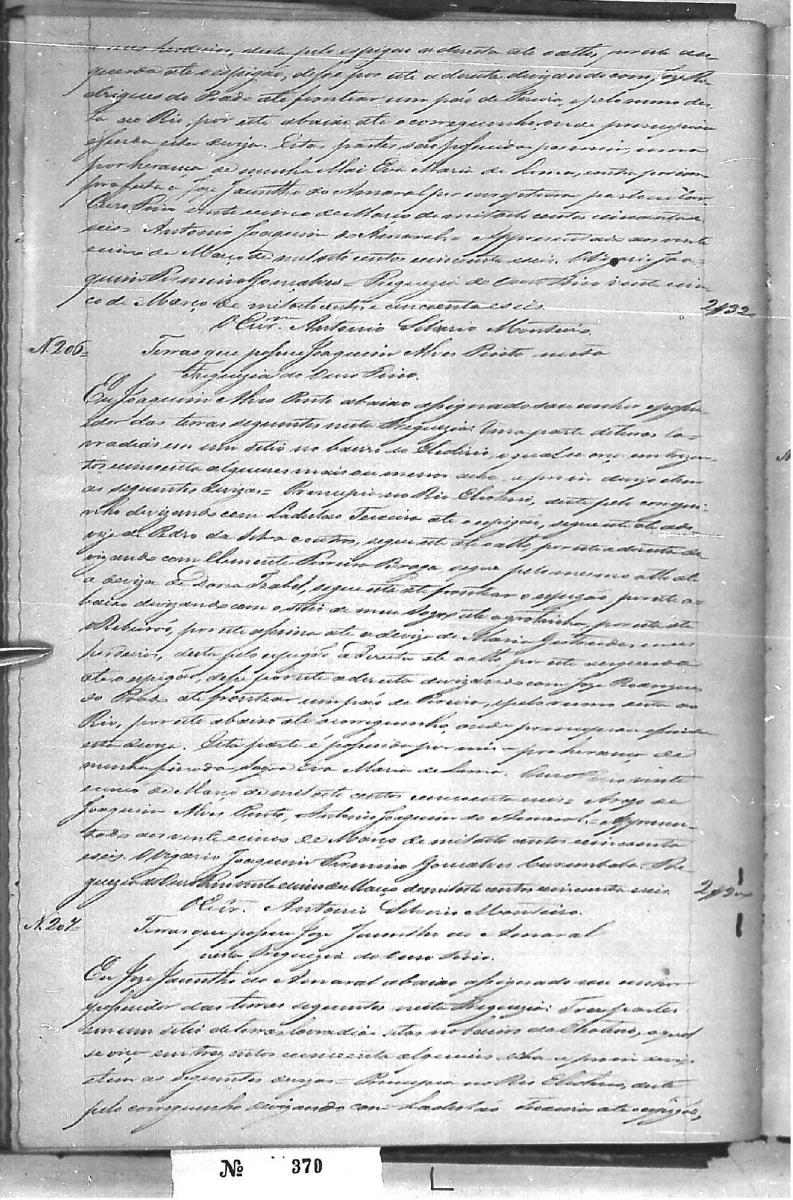 e seus herdeiros, desta pelo espigão a direita até o alto, por este a es-
querda até o espigão, desse por este a direita divizando com Joze Ro-
drigues do Prado até frontear um páo de Pereira, e pelo rumo des-
ta ao Rio, por este abaixo até o correguinho, onde principiou
e finda esta diviza. Estas partes são possuidas por mim, uma
por herança de minha Mai Eva Maria de Lima, outra por
feita a Joze Jacintho do Amaral por escriptura particular
Ouro Fino vinte e cinco de Março de mil oito centos cincoenta e
seis = Antonio Joaquim do Amaral = Appresentada aos vinte
e cinco de Março de mil oito centos cincoenta e seis. O Vigario Joa-
quim Firmino Gonçalves = Freguezia do Ouro Fino vinte e cin-
co de Março de mil oito centos e cincoenta e seis
2$32
O Escrm. Antonio Silverio Monteiro.
N. 206=
Terras que possue Joaquim Alves Pinto nesta
Freguezia do Ouro Fino.
Eu Joaquim Alves Pinto abaixo assignado sou senhor e possui-
dor das terras seguintes nesta Freguezia: Uma parte de terras la-
vradias em um sitio no bairro do, o qual se orça em trezen-
tos e cincoenta alqueires mais ou menos, e tem
as seguintes divizas = Principia no Rio, deste pelo corregui-
nho divizando com Ladislau Teixeira até o espigão, segue este até a di-
viza de Pedro da Silva e outros, segue este até o alto, por este a direita di-
vizando com Clemente Pereira Braga, segue pelo mesmo alto até
a diviza de Dona Izabel, segue este até frontear o espigão, por este a-
baixo divizando com o sitio de meu Sogro até a grotinha, por esta até
o Ribeirão, por este assima até a diviza de Maria Gertrudes, e seus
herdeiros, desta pelo espigão a direita até o alto por este a esquerda
até o espigão, desse por este a direita divizando com Joze Rodrigues
do Prado até frontear um páo de Pereira, e pelo rumo deste ao
Rio, por este abaixo até o correguinho, onde principiou e finda
esta diviza. Esta parte é possuida por mim por herança de
minha finada Sogra Eva Maria de Lima. Ouro Fino vinte
e cinco de Março de mil oito centos cincoenta e seis = Arogo de
Joaquim Alves Pinto, Antonio Joaquim do Amaral = Appresen-
tado aos vinte e cinco de Março de mil oito centos cincoenta
e seis. O Vigario Joaquim Firmino Gonçalves Curimbaba. Fre-
guezia do Ouro Fino vinte e cinco de Março de mil oito centos e cincoenta e seis.
O Escr. Antonio Silverio Monteiro.
N. 207=
Terras que possue Joze Jacintho do Amaral
nesta Freguezia do Ouro Fino.
Eu Joze Jacintho do Amaral abaixo assignado sou senhor
e possuidor das terras seguintes nesta Freguezia: Tres partes
em um sitio de terras lavradias sitas no bairro do, o qual
se orça em trezentos e cincoenta alqueires
e tem as seguintes divizas = Principia no Rio, deste
pelo correguinho divizando com Ladisláo Teixeira até o espigão,
Nº 370